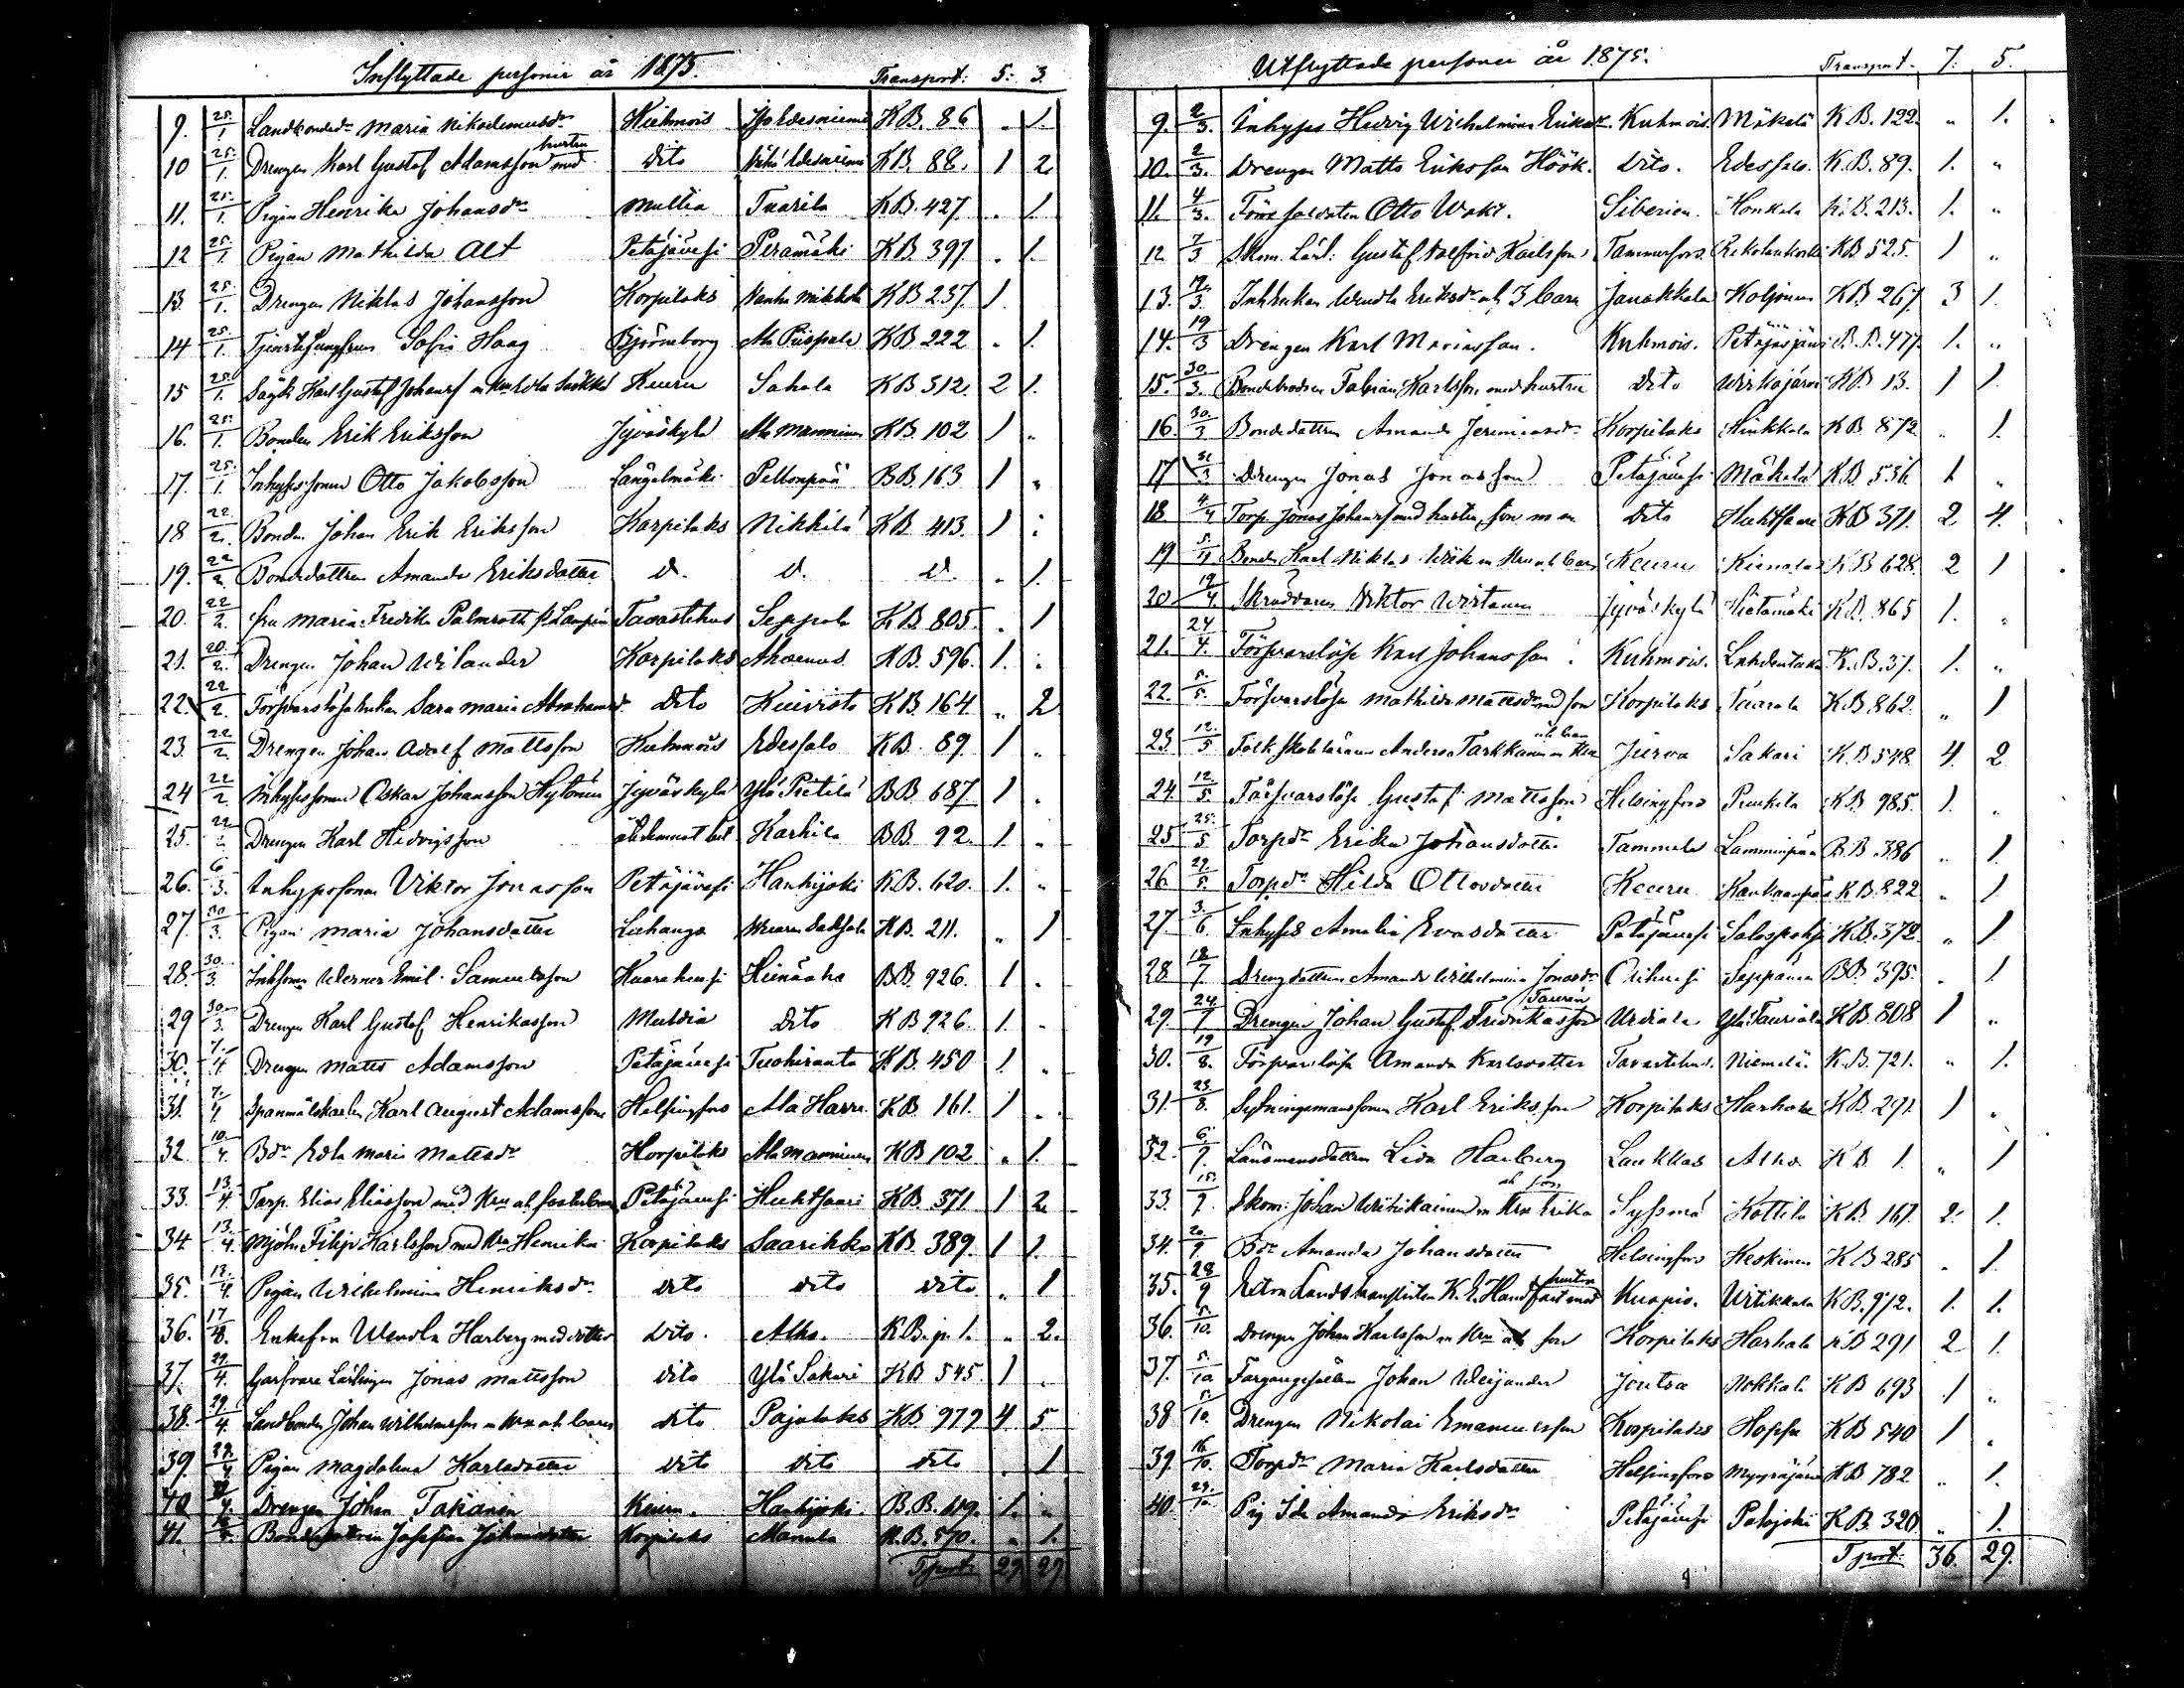 Inflyttade personer år 1875. Transport: 5: 3.
9. 25./1. Landbonded:r Maria Nikodemusd:r Kuhmois KB. 86 „ 1.
10 25./1. Drengen Karl Gustaf Adamsson med hustru dito KB. 88. 1 2
11. 25./1. Pigan Henrika Johansd:r Multia Tuarila KB. 427 . 1.
12 25./1. Pigan Mathilda Alt Petäjävesi Perämäki KB 397 . 1.
13. 25./1. Drengen Niklas Johansson Korpilaks Wanha Mikkola KB 237. 1
14 25./1. Tjenstejungfrun Sofia Haag Björneborg Ala Piispala KB 222 „ 1.
15 25./1. Karl Gustaf Keuru Sahala KB 512. 2 1.
16. 25./1. Bonden Erik Eriksson Jyväskylä Ala Manninen KB. 102 1 „
17. 25./1. Inhysessonen Otto Jakobsson Längelmäki Pellonpää BB 163 1 „
18 22./2. Bonden Johan Erik Eriksson Korpilaks Nikkilä KB 413. 1 „
19. 22/2. Bondedottren Amanda Eriksdotter d. d. d. „ 1.
20. 22/2. fru Maria Fredrika Palmroth Tavastehus Seppola KB 805. „ 1
21. 20./2. Drengen Johan Wilander Korpilaks Ahvenus KB. 596. 1. „
22. 22/2. Försvarslösa enkan Sara Maria Abrahamsd. dito Kuivisto KB. 164 „ 2
23. 22/2. Drengen Johan Adolf Mattsson Kuhmois Edessalo KB. 89. 1 „
24 22/2. Inhysessonen Oskar Johansson Hytönen Jyväskylä Ylä Pietilä BB 687 1 „
25. 22/2. Drengen Karl Hedvigsson Karhila BB 92. 1 „
26. 6/3. Inhysessonen Viktor Jonasson Petäjävesi Hankijoki KB. 620. 1. „
27. 30/3. Pigan Maria Johansdotter Luhanga KB. 211. „ 1
28. 30./3. Inhsonen Werner Emil Samuelsson Kuorehvesi Heinäaho BB. 926. 1 „
29 30/3. Drengen Karl Gustaf Henrikasson Multia dito KB 926. 1. „
30. 7./4 Drengen Matts Adamsson Petäjävesi Tuohiranta KB. 450 1. „
31. 7./4 Spanmålskarlen Karl August Adamsson Helsingfors Ala Harru KB 161. 1 „
32 10./4. Bd:r Edla Maria Mattsd:r Korpilaks Ala Manninen KB 102 „ 1.
33. 13./4. Torp. Elias Eliasson med h:ru och fosterbarn Petäjävesi Huhtsaari KB. 371 1 2
34 13./4. Mjöln. Filip Karlsson med h:ru Henrika Korpilaks Saarikko KB. 389. 1 1.
35. 13./4. Pigan Wilhelmina Henriksd:r dito dito dito „ 1
36. 17/4. Enkefru Wendla Harberg med dotter dito. Alho. K.B. p. 1. „ 2.
37. 29./4. Garfvare Lärlingen Jonas Mattsson dito Ylä Sakari KB 545. 1 „
38. 29./4 Landbonden Johan Wilhelmsson m h:ru och barn dito Pajulaks KB. 979 4 5
39. 29./4 Pigan Magdalena Karlsdotter dito dito dito „ 1
40 Drengen Johan Takanen Keuru. Hankijoki B.B. 619. 1. „
41. Bondedottren Josefina Johansdotter Korpilaks Mannila K.B. 570. „ 1.
Tport: 29 29.
Utflyttade personer år 1875. Transport. 7: 5.
9. 2/3. Inhyses Hedvig Wilhelmina Eriksd:r Kuhmois Mäkelä K.B. 122. „ 1.
10. 2/3. Drengen Matts Eriksson Höök. Dito. Edessalo. K.B. 89. 1. „
11. 4/3. Före soldaten Otto Wakt. Siberien. Honkala K.B. 213. 1. „
12 7/3 Skom. Lärl: Gustaf Walfrid Karlsson Tammerfors KB 525. 1 „
13. 19/3. Inh. enkan Wendla Eriksd:r och 3 barn Janakkala Koljonen KB 267. 3 1.
14. 19/3 Drengen Karl Mariasson. Kuhmois. Petäjäsjärvi B.B. 477. 1. „
15. 30./3. Bondebrodren Fabian Karlsson med hustru dito Wirkajärvi KB 13. 1 1.
16. 30./3 Bondedottren Amanda Jeremiasd:r Korpilaks Hinkkala KB 872 „ 1.
17 31/3 Drengen Jonas Jonasson Petäjävesi Mäkelä KB 536 1 „
18. 4/4 Torp. Jonas Johansson med hustru, son m m dito Huhtsaari KB 371. 2 4.
19 5./4 Bonden Karl Niklas Keuru KB 628. 2 1
20 19/4 Skräddaren Wiktor Wirtanen Jyväskylä Hietamäki KB. 865 1. „
21. 24/4. Försvarslöse Karl Johansson Kuhmois. K.B. 37. 1. „
22. 5./5. Försvarslösa Mathilda Mattsd:r med son Korpilaks Tuarala KB 862. „ 1
23 12./5 Folkskoleläraren Anders Tarkkanen m h:ru och barn Jurva Sakari KB 548 4. 2
24 12/5. Försvarslöse Gustaf Mattsson Helsingfors Puukila KB 985. 1. „
25 25./5 Torpd:r Erika Johansdotter Tammela Lamminpää B.B. 386 „ 1.
26 29./5 Torpd:r Hilda Ottosdotter Keuru Kankaanpää KB. 822 „ 1
27 3./6. Inhyses Amalia Evasdotter Petäjävesi Salospohja KB. 372 „ 1
28 18/7. Drengdottren Amanda Wilhelmina Jonasd:r Orihvesi Seppänen BB. 395. „ 1.
29. 24./7 Drengen Johan Gustaf Fredrikasson Tauren Urdiala Ylä Tauriala KB. 808 1 „
30. 19/8. Försvarslösa Amanda Karlsdotter Tavastehus. Niemelä K.B. 721. „ 1.
31. 23./8. Sytningsmanssonen Karl Eriksson Korpilaks Harhala KB 291 1 „
32. 6./9. Länsmansdottren Lida Harberg Laukkas Alho. KB 1. „ 1
33 15./9. Skom: Johan Wihikainen m h:ru Erika och son Sysmä Kottila KB 167. 2. 1.
34. 20/9. Bd:r Amanda Johansdotter Helsingfors Keskinen KB 285 „ 1.
35. 28/9 Extra Landtkanslisten K. E. Handfast med hustru Kuopio. Uitikkala KB. 972. 1. 1.
36 5./10. Drengen Johan Karlsson m h:ru och son Korpilaks Harhala KB 291 2 1.
37. 5./10 Färgaregesällen Johan Weijander Joutsa Nokkala KB 693 1 „
38 5./10. Drengen Nikolai Emanuelsson Korpilaks Hoppu KB 540 1 „
39. 16./10. Torpd:r Maria Karlsdotter Helsingfors KB 782 „ 1.
40. 29./10. Pig. Ida Amanda Eriksd:r Petäjävesi Patajoki KB 320 „ 1.
Tport: 36. 29.